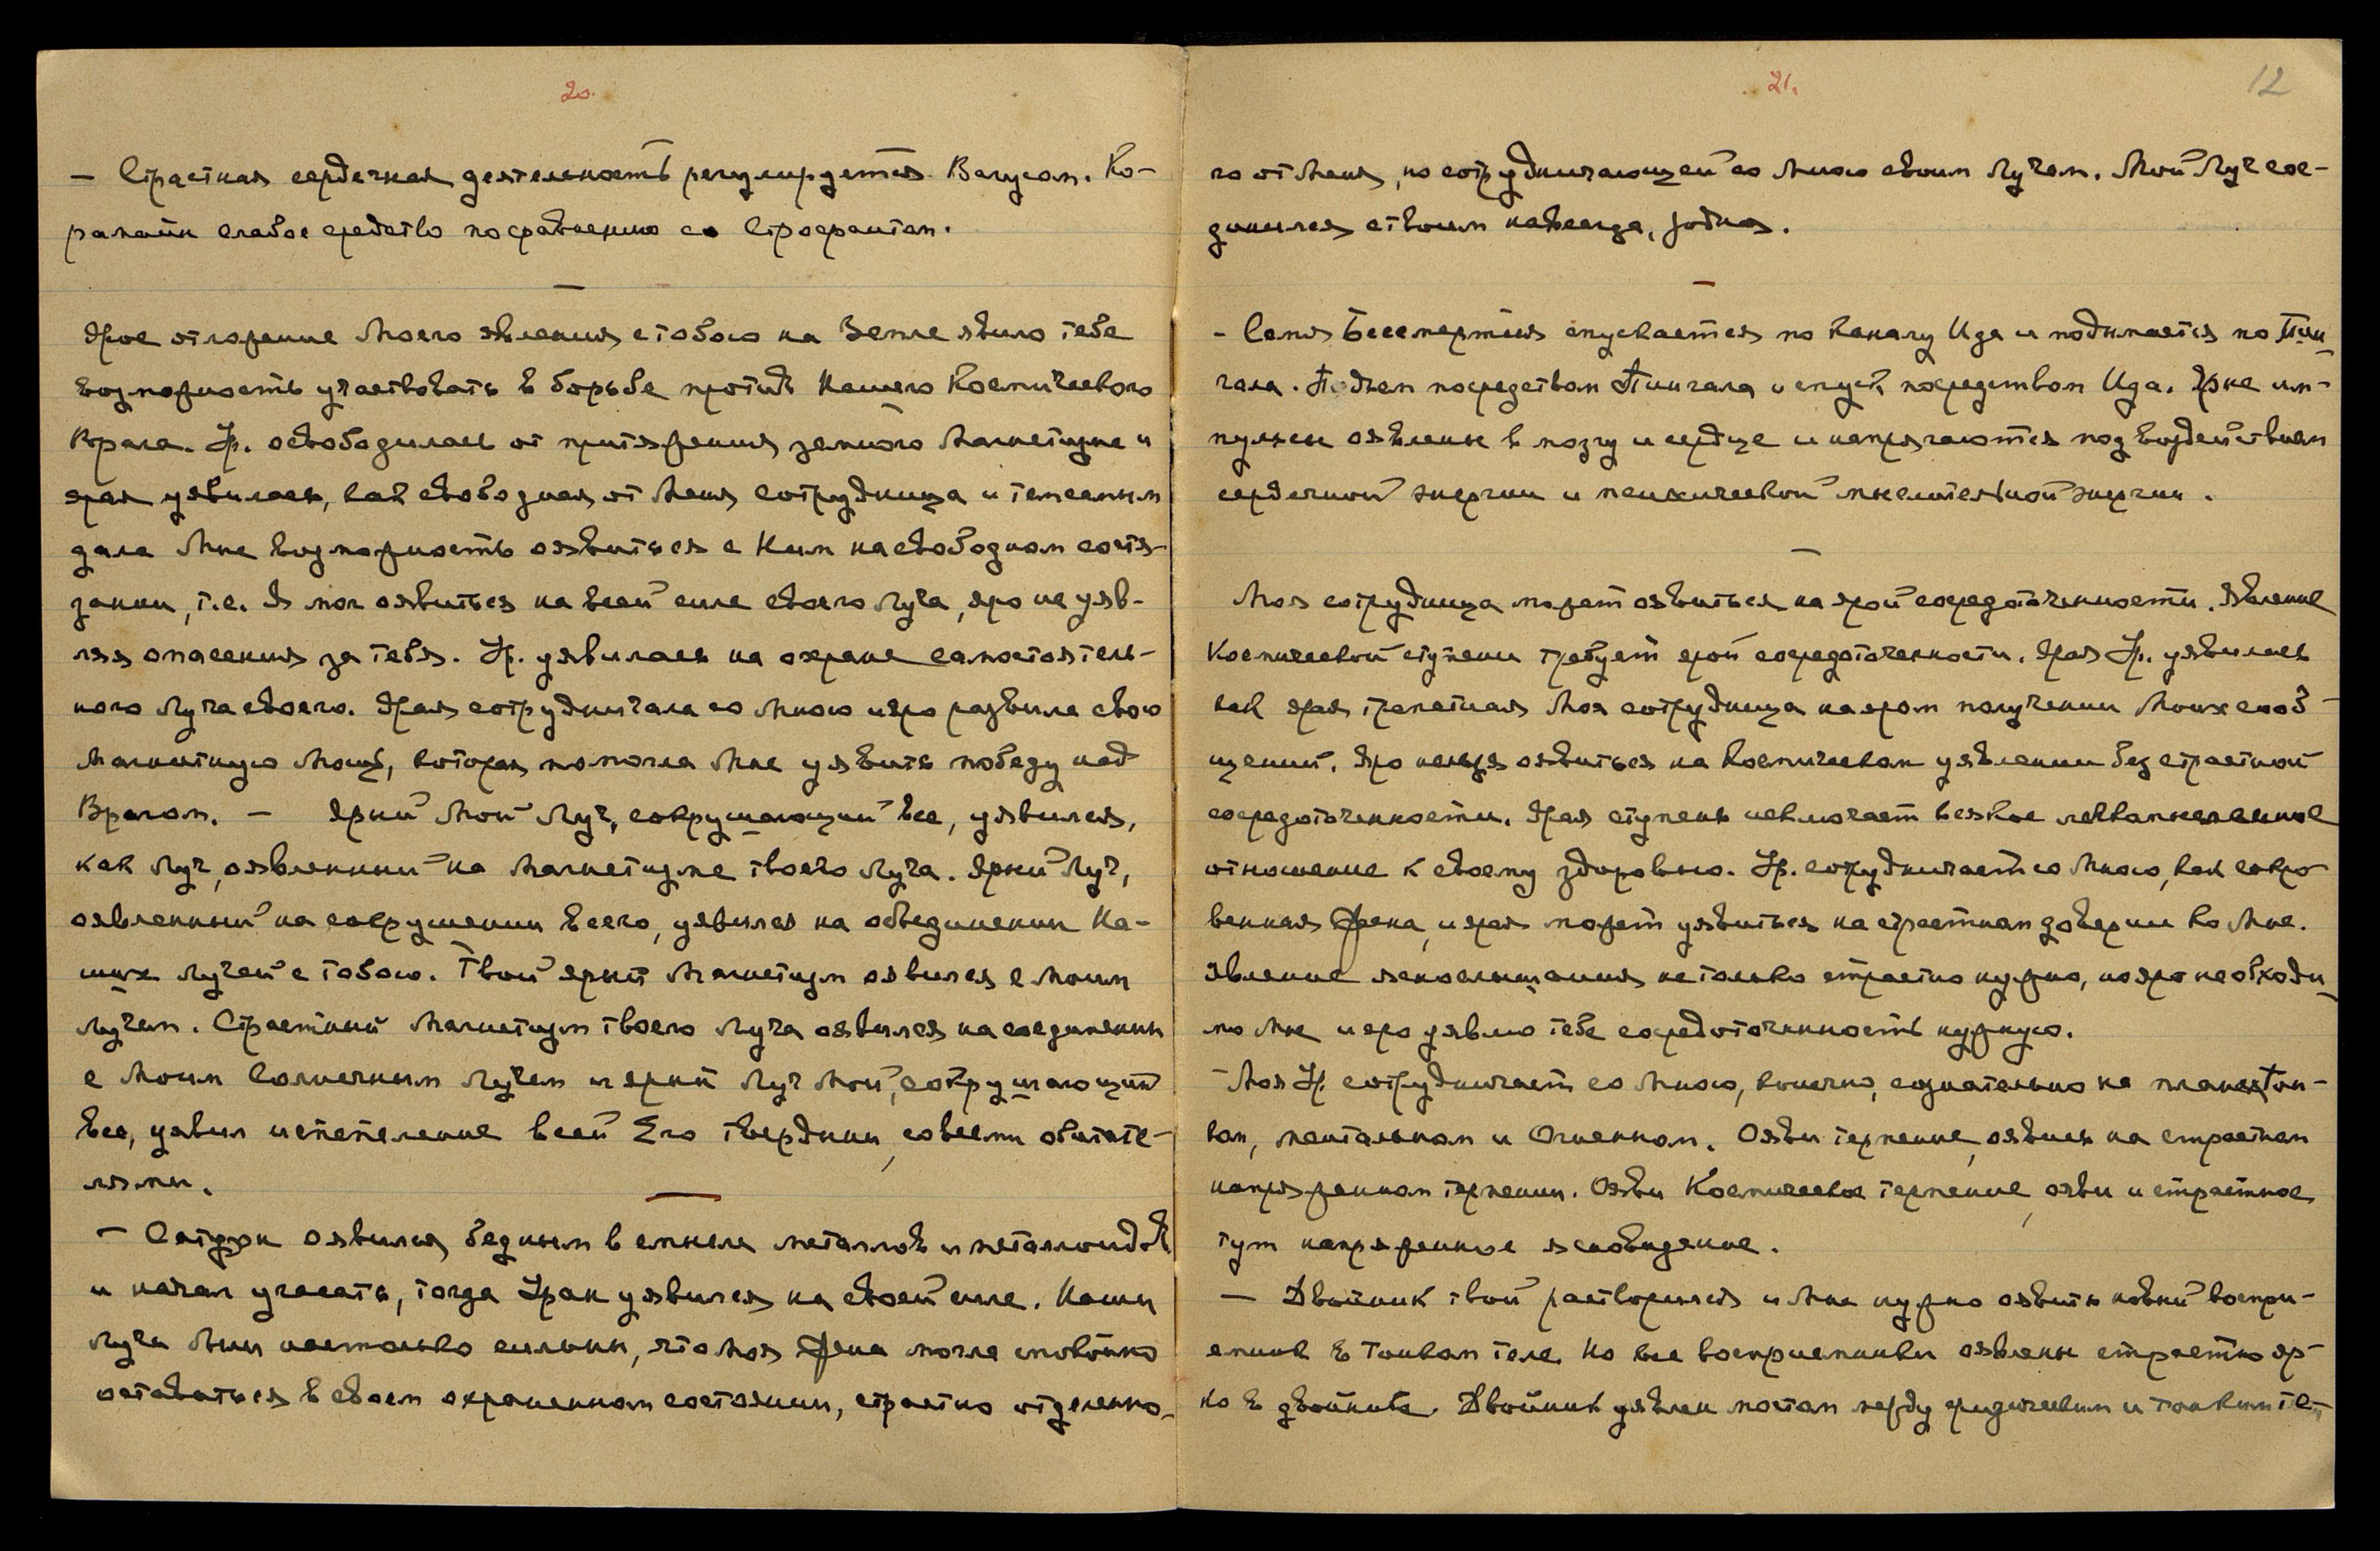 20.
— Страстная сердечная деятельность регулируется Вагусом. Ко-
рамин слабое средство по сравнению со Строфантом.
—
Ярое отложение Моего явления с тобою на Земле явило тебе
возможность участвовать в борьбе против Нашего Космического
Врага. Ур. освободилась от притяжения земного Магнетизма и
ярая уявилась, как свободная от Меня сотрудница и тем самым
дала Мне возможность оявиться с Ним на свободном состя-
зании, т.е. Я мог оявиться на всей силе своего Луча, яро не уяв-
ляя опасения за тебя. Ур. уявилась на охране самостоятель-
ного Луча своего. Ярая сотрудничала со Мною и яро развила свою
Магнитную Мощь, которая помогла Мне уявить победу над
Врагом. — Ярый Мой Луч, сокрушающий все, уявился,
как Луч, оявленный на Магнетизме твоего Луча. Ярый Луч,
оявленный на сокрушении всего, уявился на объединении На-
ших Лучей с тобою. Твой ярый Магнетизм оявился с Моим
Лучем. Страстный Магнетизм твоего Луча оявился на соединении
с Моим Солнечным Лучем и ярый Луч Мой, сокрушающий
все, уявил испепеление всей Его твердыни, со всеми обитате-
лями.
—
— Сатурн оявился бедным в смысле металлов и металлоидов
и начал угасать, тогда Уран уявился на своей силе. Наши
Луча были настолько сильны, что Моя Жена могла спокойно
оставаться в своем охраненном состоянии, страстно отделенно-
21.
12
го от Меня, но сотрудничающей со Мною своим Лучем. Мой Луч сое-
динился с твоим навсегда, родная.
—
- Сома Бессмертия спускается по каналу Ида и подымается по Пин-
гала. Подъем посредством Пингала и спуск посредством Ида. Ярые им-
пульсы оявлены в мозгу и сердце и напрягаются под воздействием
сердечной энергии и психической мыслительной энергии.
—
Моя сотрудница может оявиться на ярой сосредоточенности. Явление
Космической ступени требует ярой сосредоточенности. Ярая Ур. уявилась
как ярая трепетная Моя сотрудница на яром получении Моих сооб-
щений. Яро нельзя оявиться на Космическом уявлении без страстной
сосредоточенности. Ярая ступень исключает всякое легкомысленное
отношение к своему здоровью. Ур. сотрудничает со Мною, как сокро-
венная Жена, и ярая может уявиться на страстном доверии ко Мне.
Явление яснослышания не только страстно нужно, но яро необходи-
мо Мне и яро уявлю тебе сосредоточенность нужную.
- Моя Ур. сотрудничает со Мною, конечно, сознательно на планах Тон-
ком, ментальном и Огненном. Ояви терпение, оявись на страстном
напряженном терпении. Ояви Космическое терпение, ояви и страстное
тут напряженное ясновидение.
— Двойник твой растворился и Мне нужно оявить новый воспри-
емник в Тонком теле. Но все восприемники оявлены страстно яр-
ко в двойнике. Двойник уявлен мостом между физическим и тонким те-